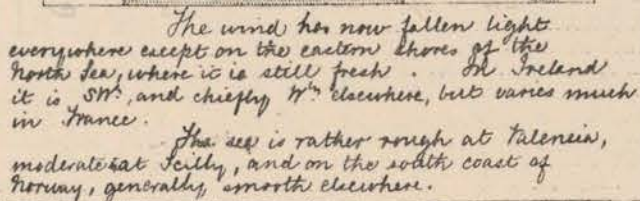 The wind has now fallen light
everywhere except on the eastern shores of the
North Sea, where it is still fresh. In Ireland
it is SWn, and chiefly Wn elsewhere, but varies much
in France.
The sea is rather rough at Valencia,
moderate at Scilly, and on the south coast of
Norway, generally smooth elsewhere.